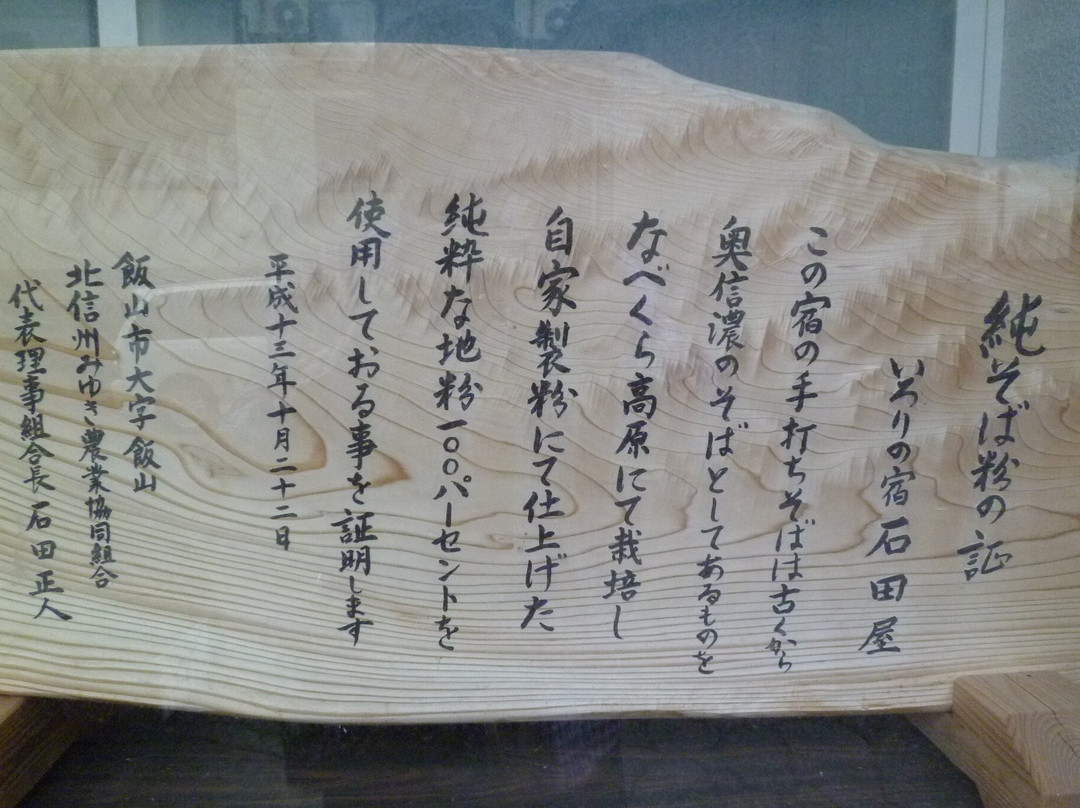 純そば粉の証
いろりの宿石田屋
この宿の手打ちそばは古くから
奥信濃のそばとしてあるものを
なべくら高原にて栽培し
自家製粉にて仕上げた
純粋な地粉一〇〇パーセントを
使用しておる事を証明します
平成十三年十月二十二日
飯山市大字飯山
北信州みゆき農業協同組合
代表理事組合長石田正人